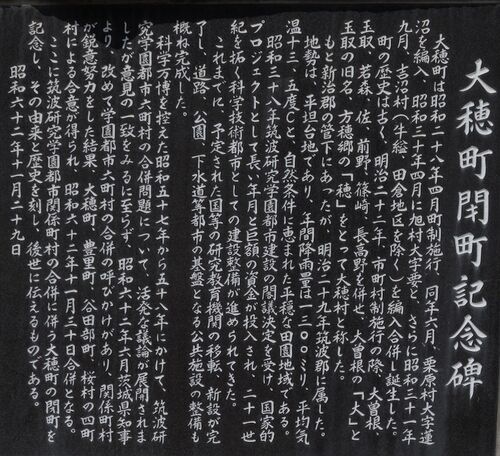 大穂町閉町記念碑
大穂町は昭和二八年四月町制施行、同年六月、栗原村大字蓮
沼を編入、昭和三十年四月に旭村大字要と、さらに昭和三一年
九月、吉沼村（牛縊、田倉地区を除く）を編入合併し誕生した。
町の歴史は古く、明治二十二年、市町村制施行の際、大曽根、
玉取、若森、佐、前野、篠崎、長高野を併せ、大曽根の「大」と
玉取の旧名、方穂郷の「穂」をとって大穂村と称した。
もと新治郡の管下にあったが、明治二十九年筑波郡に属した。
地勢は、平坦台地であり、年間降雨量は一三〇〇ミリ、平均気
温十三、五度Cと、自然条件に恵まれた平穏な田園地域である。
昭和三十八年筑波研究学園都市建設の閣議決定を受け、国家的
プロジェクトとして長い年月と巨額の資金が投入され、二十一世
紀を拓く科学技術都市としての建設整備が進められてきた。
これまでに、予定された国等の研究教育機関の移転、新設が完
了し、道路、公園、下水道等都市の基盤となる公共施設の整備も
概ね完成した。
科学万博を控えた昭和五十七年から五十八年にかけて、筑波研
究学園都市六町村の合併問題について、活発な議論が展開されま
したが意見の一致をみるに至らず、昭和六十二年六月茨城県知事
より、改めて学園都市六町村の合併の呼びかけがあり、関係町村
が鋭意努力をした結果、大穂町、豊里町、谷田部町、桜村の四町
村による合意が得られ、昭和六十二年十一月三十日合併となる。
ここに筑波研究学園都市関係町村の合併に伴う大穂町の閉町を
記念し、その由来と歴史を刻し、後世に伝えるものである。
昭和六十二年十一月二十九日